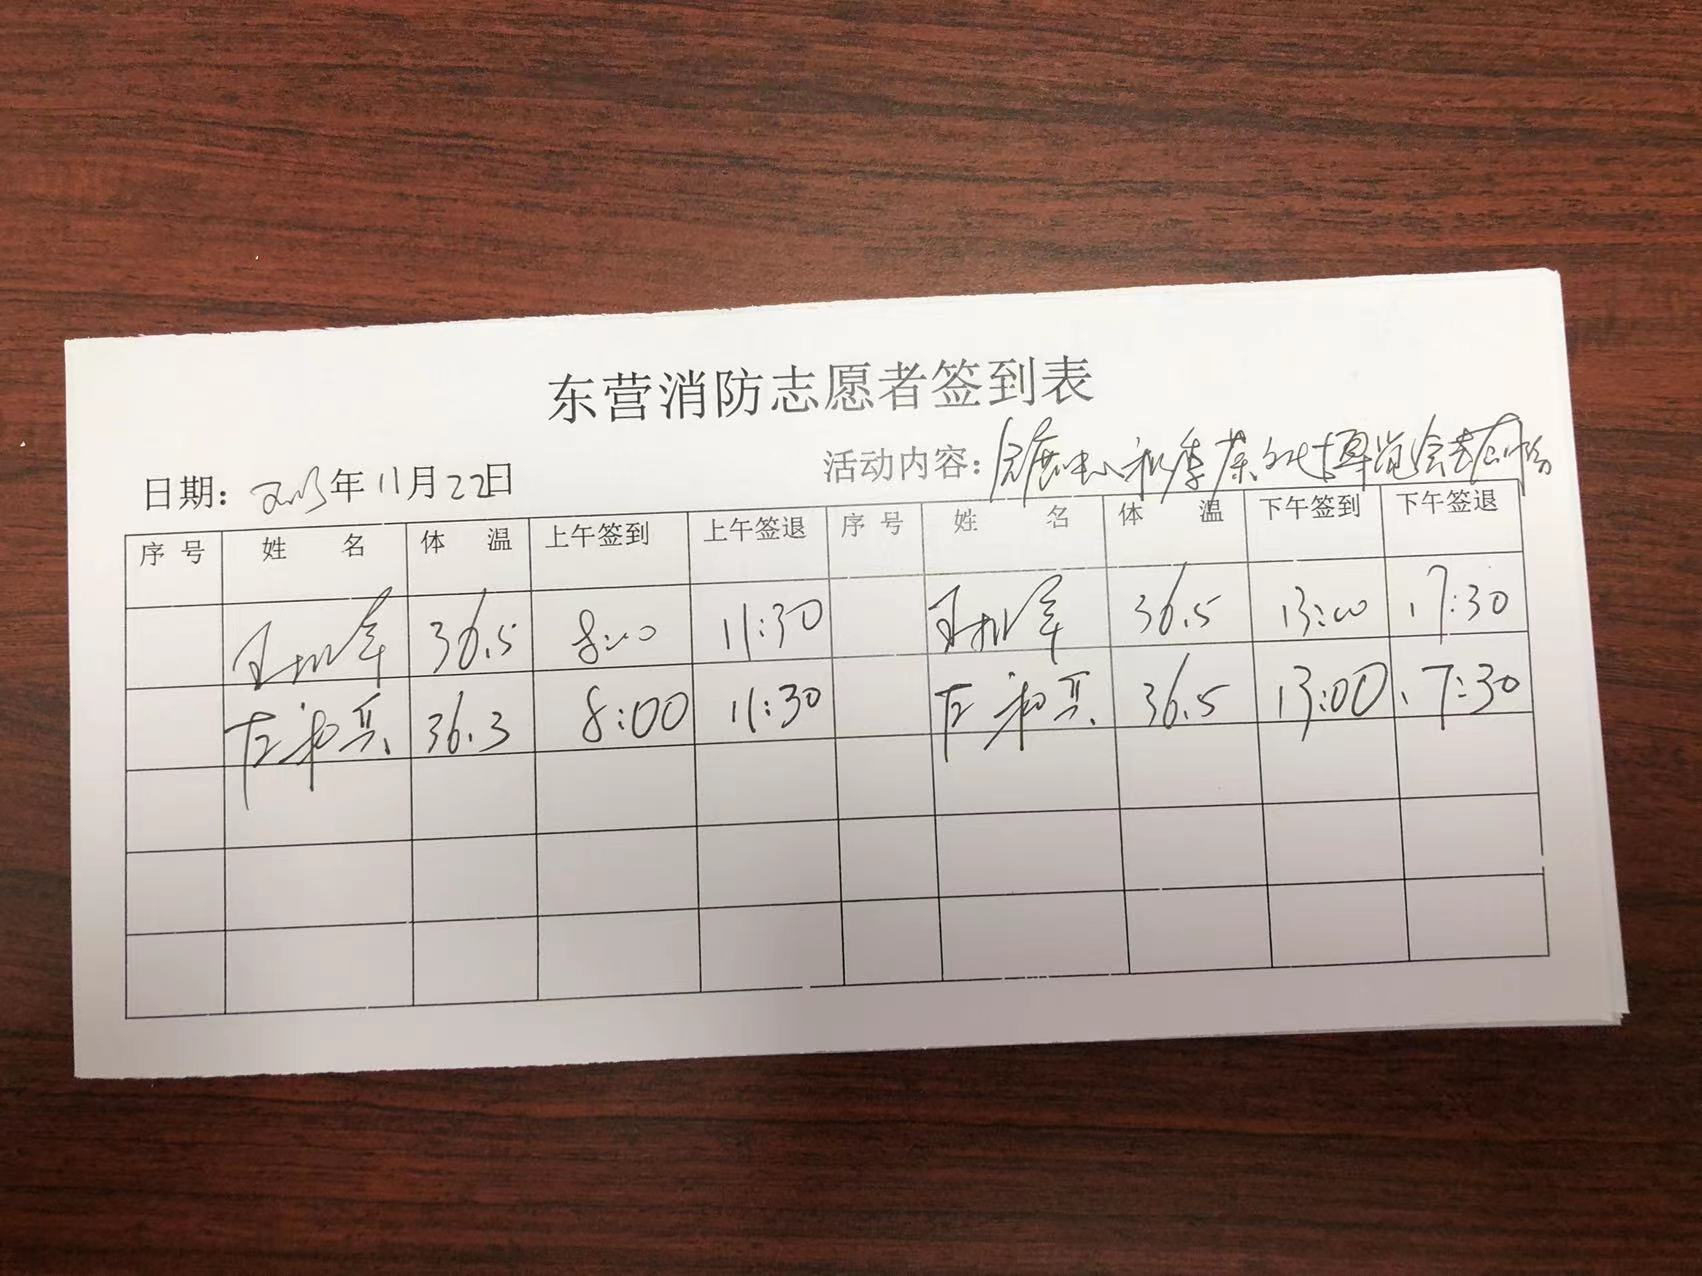 东营消防志愿者签到表
活动内容：会展中心秋季茶文化博览会
日期： 年11月22日
序号 姓名 体温 上午签到 上午签退 序号 姓名 体温 下午签到 下午签退
36.5 8:00 11:30 36.5 13:00 17:30
36.3 8:00 11:30 36.5 13:00 17:30